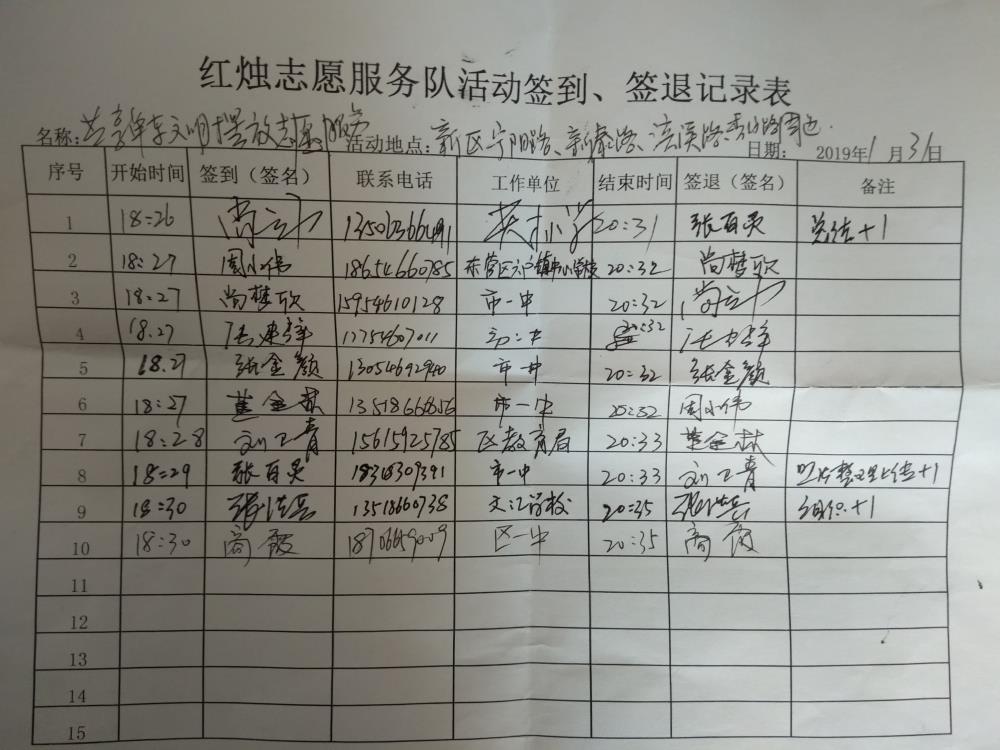 红烛志愿服务队活动签到、签退记录表
名称：共享单车文明摆放志愿服务 活动地点：新区宁阳路、新泰路、 日期： 2019年1月31日
序号 开始时间 签到（签名） 联系电话 工作单位 结束时间 签退（签名） 备注
1 18:26 尚 小学 20:31 张百灵 总结+1
2 18:27 周小伟 18654660785 东营区六户镇中心学校 20:32 尚梦歌
3 18:27 尚梦歌 15954610128 市一中 20:32 尚
4 18.27 20:32
5 18.27 张金颜 13054692940 市一中 20:32 张金颜
6 18:27 董金林 13518666656 市一中 20:32 周小伟
7 18:28 刘卫青 15615925785 区教育局 20:33 董金林
8 18:29 张百灵 市一中 20:33 刘卫青 照片整理上传+1
9 18:30 张洪兵 13518660738 文汇学校 20:35 张洪兵 组织+1
10 18:30 商霞 18706659009 区一中 20:35 商霞
11
12
13
14
15